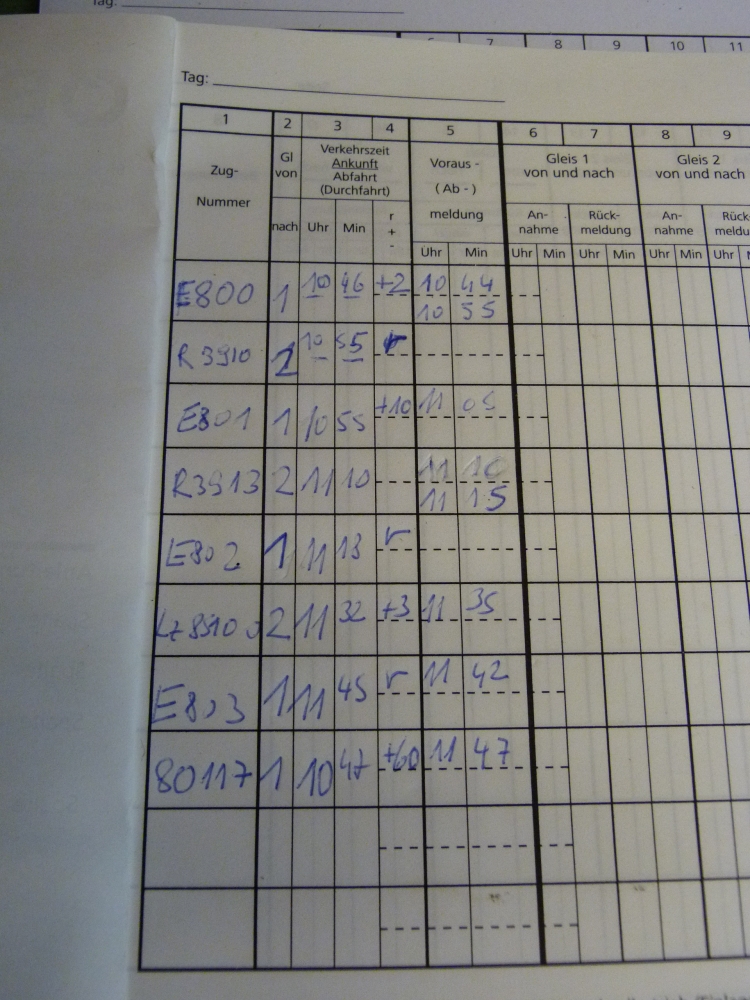 Tag:
6 7 8 9 10 11
Tag:
1 2 3 4 5 6 7 8 9
Zug-
Nummer
Gl
von
nach
Verkehrszeit
Ankunft
Abfahrt
(Durchfahrt)
Uhr Min
r
+
-
Voraus -
( Ab - )
meldung
Uhr Min
Gleis 1
von und nach
Gleis 2
von und nach
An-
nahme
Rück-
meldung
An-
nahme
Rück-
meldu
Uhr Min Uhr Min Uhr Min Uhr
E800 1 10 46 +2 10 44
10 55
R 3910 2 10 55 r
E801 1 10 55 +10 11 05
R3913 2 11 10 11 10
11 15
E802 1 11 13 r
2 11 32 +3 11 35
E803 1 11 45 r 11 42
80117 1 10 47 +60 11 47